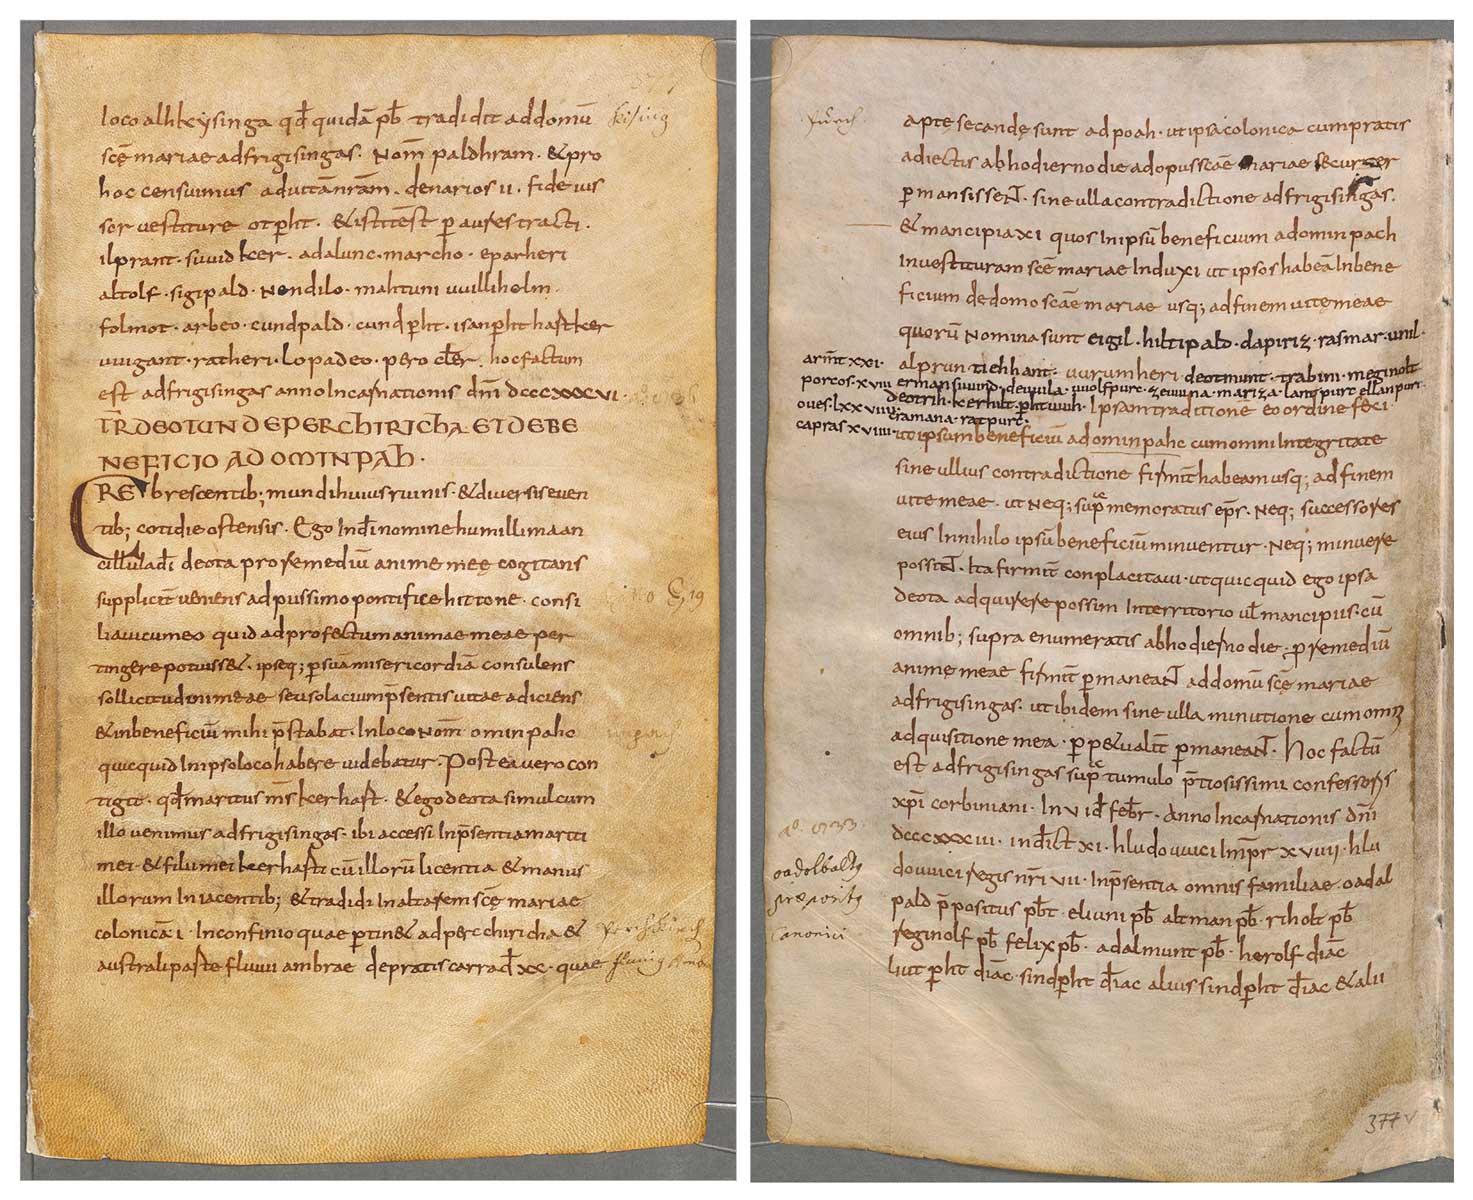 loco alhkysinga qđ quidā pƀ tradidit ad domū
scē mariae ad frigisingas. Nom̄ paldhram. & pro
hoc censuimus ad uitā nr̄am. denarios II. fideius
sor uestiture otꝑht. & isti test̄ ꝑ aures tracti.
ilprant. suuidker. adalunc. marcho. eparheri
altolf. sigipald. Nendilo. mahtuni uuillihelm.
folmot. arbeo. cundpald. cundꝑht. isanꝑht hastker
uuigant. ratheri. lopadeo. pero cƚer. hoc factum
est ad frigisingas anno incarnationis dn̄i dcccxxxvi.
TR̄ DEOTUN DE PERCHIRICHA ET DE BE
NEFICIO AD OMINPAH.
CREbrescentib; mundi huius ruinis. & diuersis euen
tib; cotidie ostensis. Ego in dī nomine humillima an
cillula dī deota pro remediū anime meę cogitans
supplicit̄ ueniens ad piissimo pontifice hittone. consi
liaui cum eo quid ad profectum animae meae per
tingere potuiss&. ipseq; ꝑ suā misericordiā consulens
sollicitudini meae seu solacium p̄sentis uitae adiciens
& in beneficiū mihi p̄stabat. In loco Nom̄ ominpahc
quicquid in ipso loco habere uidebatur. Postea uero con
tigit. qđ maritus m̄s kerhast. & ego deota simul cum
illo uenimus ad frigisingas. ibi accessi in p̄sentia mariti
mei. & filii mei kerhasti cū illorū licentia & manus
illorum iniacentib; & tradidi in altarem scę mariae
colonicā I. In confinio quae ꝑtin& ad percchiricha &
australi parte fluuii ambrae de pratis carrađ xx. quae
kising
fluuig
apte secandę sunt ad poah. ut ipsa colonica cum pratis
adiectis ab hodierno die ad opus scāe mariae securiter
ꝑmansissent. sine ulla contradictione ad frigisingas.
& mancipia xi quos in ipsū beneficium ad ominpach
inuestituram scē mariae induxi ut ipsos habeā in bene
ficium de domo scāe mariae usq; ad finem uitę meae
quorū Nomina sunt eigil. hiltipald. dapiriz. rasmar. unil.
alprun. tiehhant. uurumheri. deotmunt. trabini. meginolt
ermansuuind. deuula. uuolfpurc. zeiuuna. mariza. lanspurt ellanpurc
deotrih. kerhilt. ꝑhtuuih. Ipsam traditione eo ordine feci.
cramana. ratpurc.
arm̄t xxi.
porcos. x viii
oues. lxx viiii.
capras x viiii.
ut ipsum beneficiū ad ominpahc cum omni integritate
sine ullius contradictione firmit̄ habeam usq; ad finem
uite meae. ut Neq; supᵉ memoratus ep̄s. Neq; successores
eius in nihilo ipsū beneficiū minuentur. Neq; minuere
possint. Ita firmit̄ conplacitaui. ut quicquid ego ipsa
deota adquirere possim in territorio uƚ mancipiis. cū
omnib; supra enumeratis ab hodierno die. ꝑ remediū
anime meae firmit̄ ꝑmaneant ad domū scē mariae
ad frigisingas. ut ibidem sine ulla minutione cum omī
adquisitione mea. ꝑp&ualit̄ ꝑmaneant. Hoc factū
est ad frigisingas supᵉ tumulo p̄tiosissimi confessoris
xp̄i corbiniani. In v iđ feƀr. Anno incarnationis dn̄i
dcccxxxiii. inđict xi. hludouuici imp̄r xviiii. hlu
douuici regis nr̄i vii. In p̄sentia omnis familiae. oadal
pald p̄positus pƀt. eliuni pƀ altman pƀ. riholt pƀ
reginolf pƀ felix pƀ. adalmunt pƀ. herolf diac̄
liutꝑht diac̄. sindꝑht điac alius sindꝑht điac & alii
oadelbaltg
prepositg
Canonici
377 v